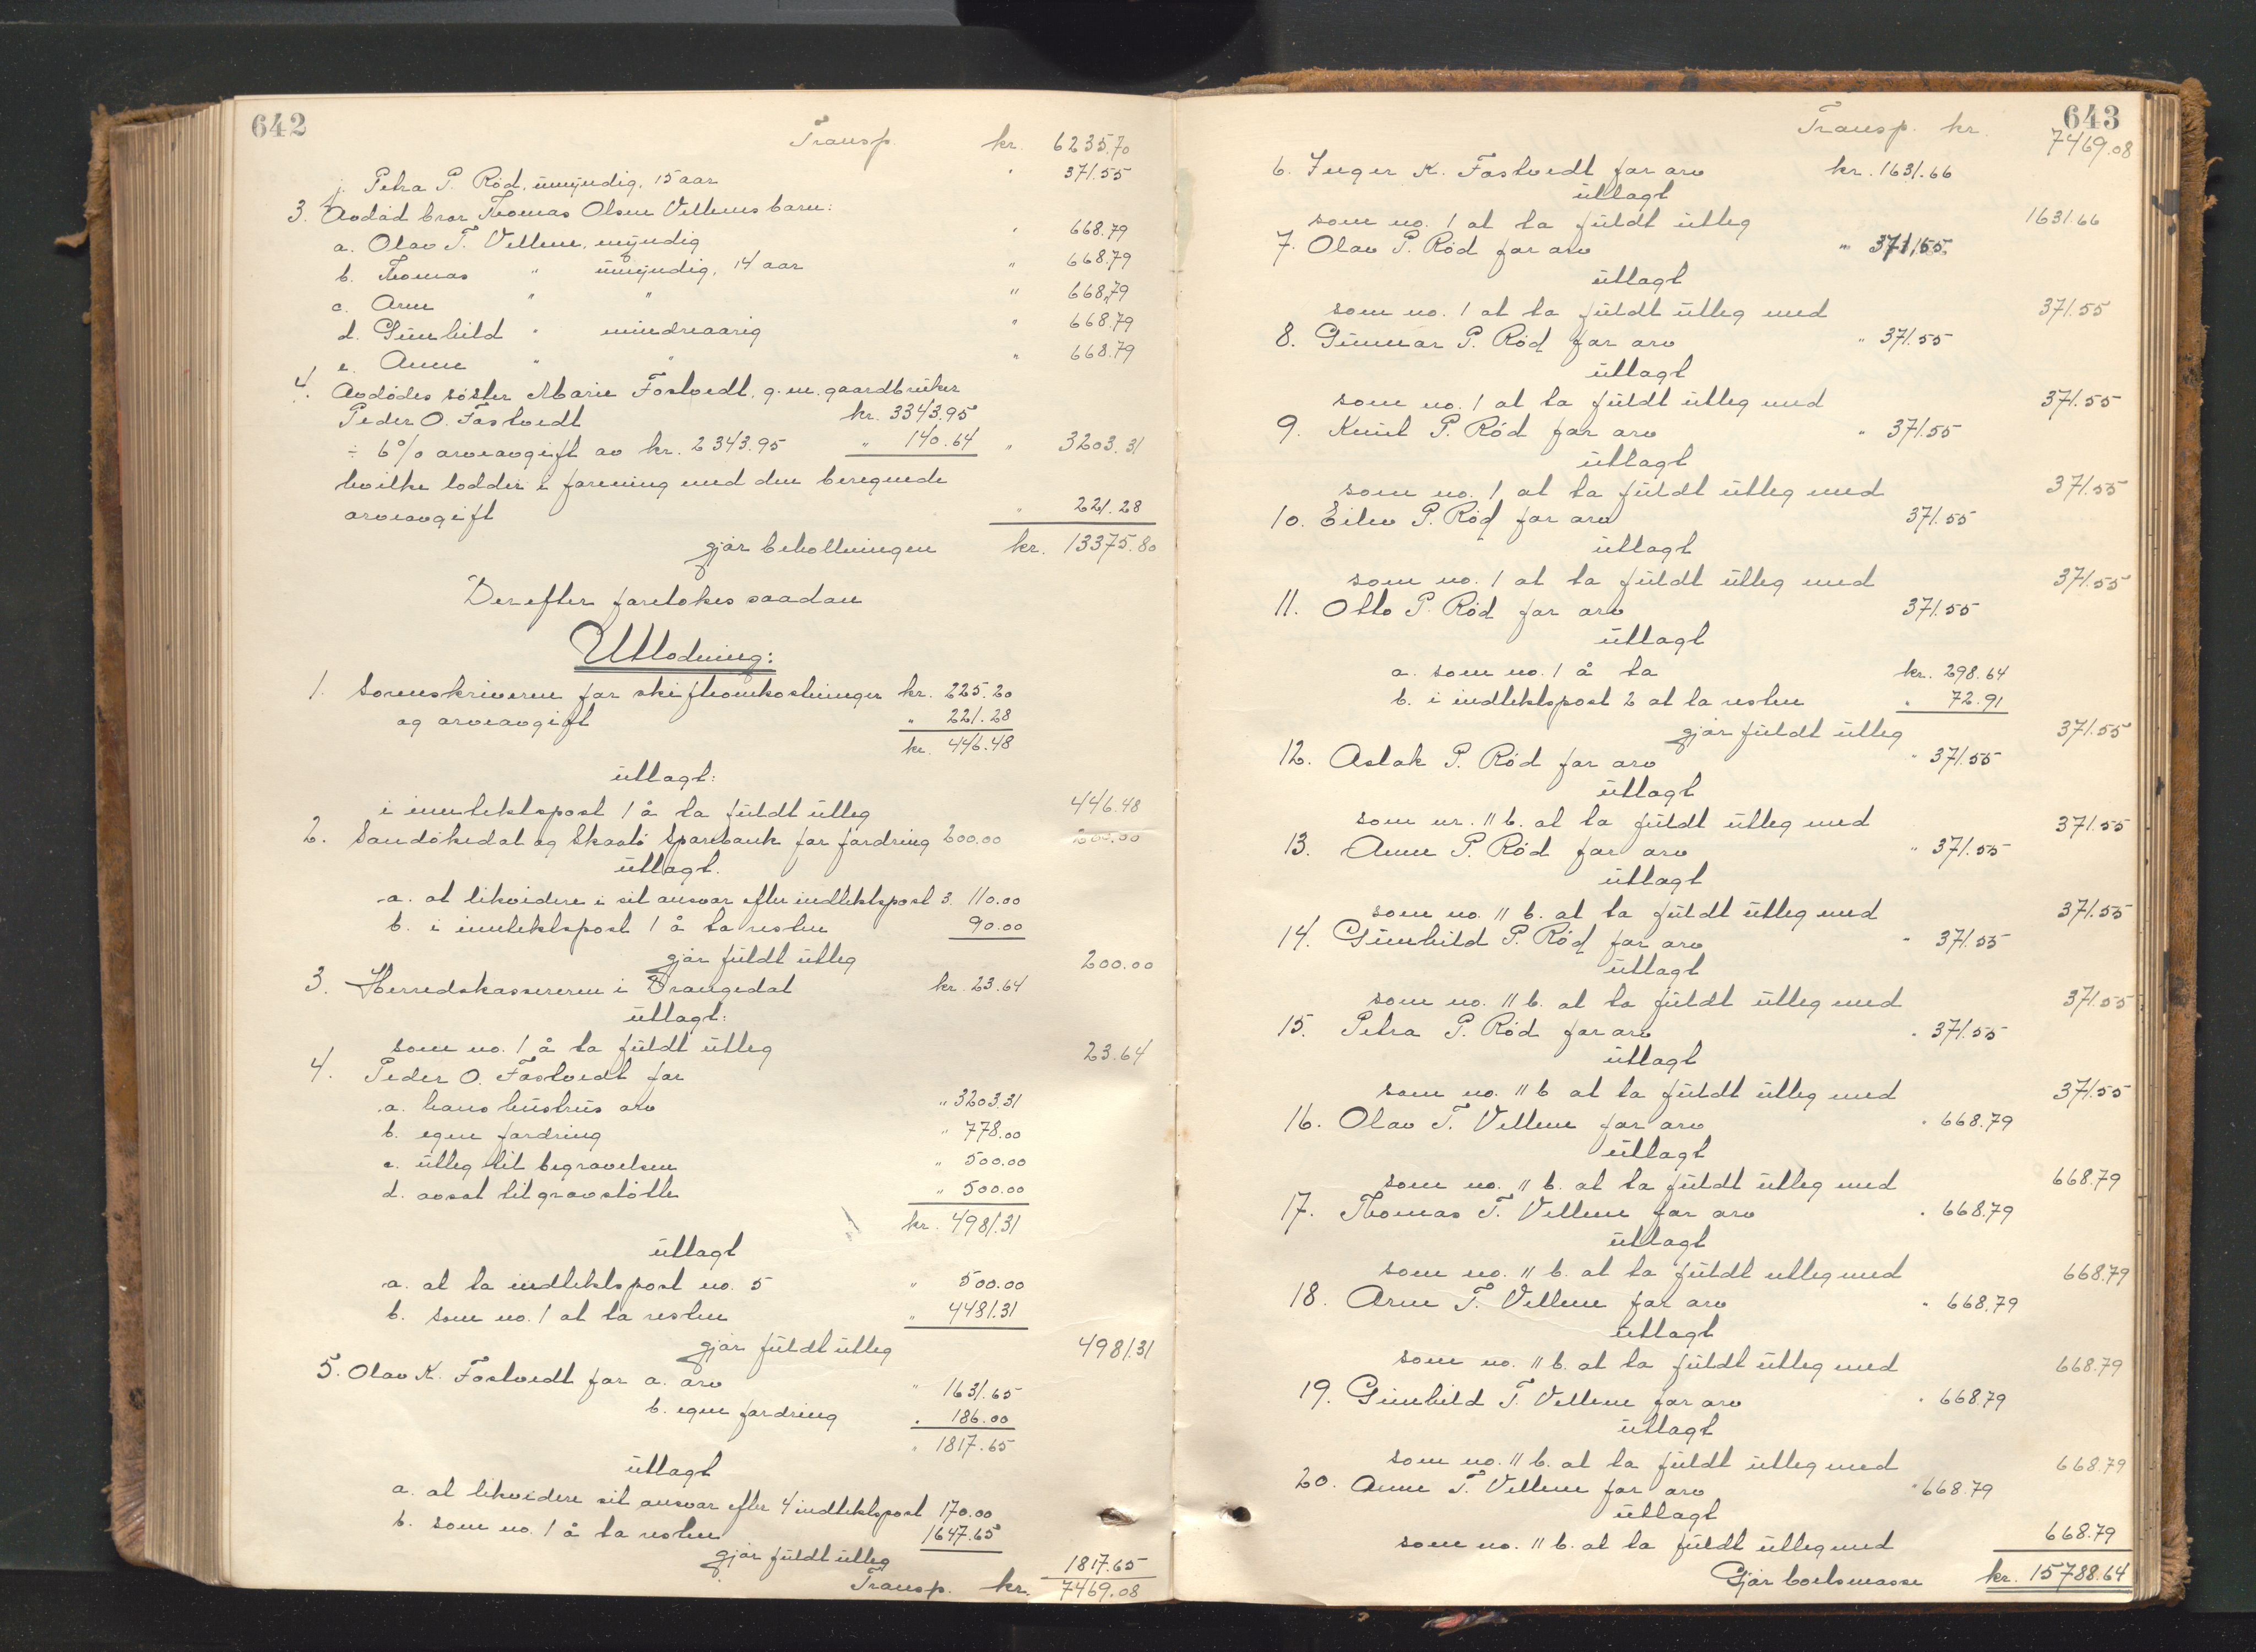 642
Transp. kr. 6235.70
j. Petra P. Röd, umyndig, 15 aar " 371.55
3. Avdöd bror Thomas Olsen Vellenes barn:
a. Olav T. Vellene, myndig " 668.79
b. Thomas " umyndig, 14 aar " 668.79
c. Arne " " " 668.79
d. Gunhild " mindreaarig " 668.79
e. Anne " " " 668.79
4. Avdödes söster Marie Fostvedt, g.m. gaardbruker
Peder O. Fostvedt kr. 3343.95
÷ 6% arveavgift av kr. 2343.95 " 140.64 " 3203.31
hvilke lodder i forening med den beregnede
arveavgift " 221.28
gjör beholdningen kr. 13375.80
Derefter foretokes saadan
Utlodning:
1. Sorenskriveren for skifteomkostninger kr. 225.20
og arveavgift " 221.28
kr. 446.48
utlagt:
i inntektspost 1 å ta fuldt utleg 446.48
2. Sandökedal og Skaatö Sparebank for fordring 200.00 200.00
utlagt.
a. at likvidere i sit ansvar efter indtektspost 3. 110.00
b. i inntektspost 1 å ta resten 90.00
gjör fuldt utleg 200.00
3. Herredskassereren i Drangedal kr. 23.64
utlagt:
som no. 1 å ta fuldt utleg 23.64
4. Peder O. Fostvedt for
a. hans hustrus arv " 3203.31
b. egen fordring " 778.00
c. utleg til begravelsen " 500.00
d. avsat til gravstötte " 500.00
kr. 4981.31
utlagt
a. at ta indtektspost no. 5 " 500.00
b. som no. 1 at ta resten " 4481.31
gjör fuldt utleg 4981.31
5. Olav K. Fostvedt for a. arv " 1631.65
b. egen fordring " 186.00
" 1817.65
utlagt
a. at likvidere sit ansvar efter 4 indtektspost 170.00
b. som no. 1 å ta resten 1647.65
gjör fuldt utleg 1817.65
Transp. kr. 7469.08
643
Transp. kr. 7469.08
6. Inger K. Fostvedt for arv kr. 1631.66
utlagt
som no. 1 at ta fuldt utleg 1631.66
7. Olav P. Röd for arv " 371.55
utlagt
som no. 1 at ta fuldt utleg med 371.55
8. Gunnar P. Röd for arv " 371.55
utlagt
som no. 1 at ta fuldt utleg med 371.55
9. Knut P. Röd for arv " 371.55
utlagt
som no. 1 at ta fuldt utleg med 371.55
10. Eilev P. Röd for arv 371.55
utlagt
som no. 1 at ta fuldt utleg med 371.55
11. Otto P. Röd for arv 371.55
utlagt
a. som no. 1 å ta kr. 298.64
b. i indtektspost 2 at ta resten " 72.91
gjör fuldt utleg 371.55
12. Aslak P. Röd for arv " 371.55
utlagt
som nr. 11 b. at ta fuldt utleg med 371.55
13. Anne P. Röd for arv " 371.55
utlagt
som no. 11 b. at ta fuldt utleg med 371.55
14. Gunhild P. Röd for arv " 371.55
utlagt
som no. 11 b. at ta fuldt utleg med 371.55
15. Petra P. Röd for arv " 371.55
utlagt
som no. 11 b at ta fuldt utleg med 371.55
16. Olav T. Vellene for arv " 668.79
utlagt
som no. 11 b. at ta fuldt utleg med 668.79
17. Thomas T. Vellene for arv " 668.79
utlagt
som no. 11 b. at ta fuldt utleg med 668.79
18. Arne T. Vellene for arv " 668.79
utlagt
som no. 11 b. at ta fuldt utleg med 668.79
19. Gunhild T. Vellene for arv " 668.79
utlagt
som no. 11 b. at ta fuldt utleg med 668.79
20. Anne T. Vellene for arv " 668.79
utlagt
som no. 11 b. at ta fuldt utleg med 668.79
Gjör boets masse kr. 15788.64